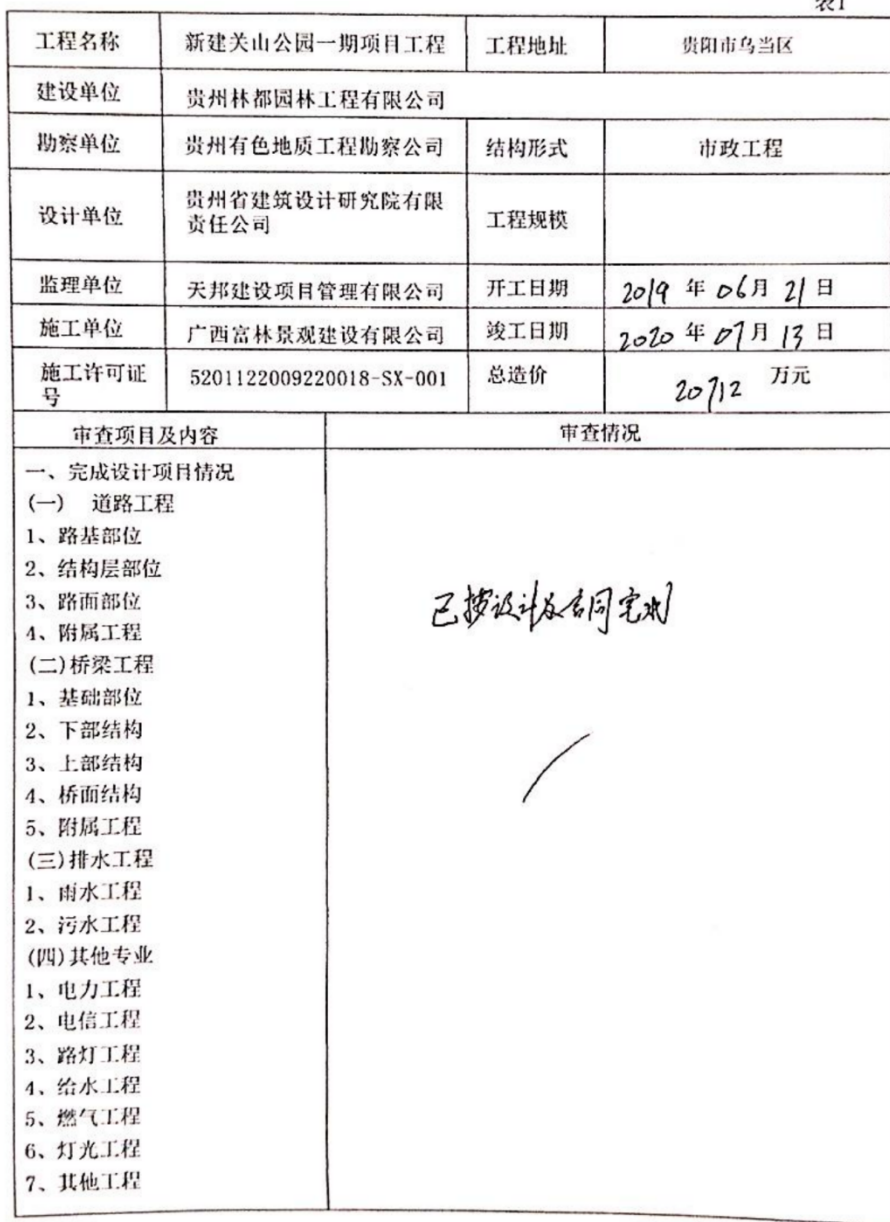 表1
工程名称 新建关山公园一期项目工程 工程地址 贵阳市乌当区
建设单位 贵州林都园林工程有限公司
勘察单位 贵州有色地质工程勘察公司 结构形式 市政工程
设计单位 贵州省建筑设计研究院有限
责任公司 工程规模
监理单位 天邦建设项目管理有限公司 开工日期 2019 年 06月 21 日
施工单位 广西富林景观建设有限公司 竣工日期 2020 年 07月 13 日
施工许可证
号 5201122009220018-SX-001 总造价 20712 万元
审查项目及内容 审查情况
一、完成设计项目情况
(一) 道路工程
1、路基部位
2、结构层部位
3、路面部位
已按设计及合同完成
4、附属工程
(二)桥梁工程
1、基础部位
2、下部结构
3、上部结构
4、桥面结构
5、附属工程
(三)排水工程
1、雨水工程
2、污水工程
(四)其他专业
1、电力工程
2、电信工程
3、路灯工程
4、给水工程
5、燃气工程
6、灯光工程
7、其他工程